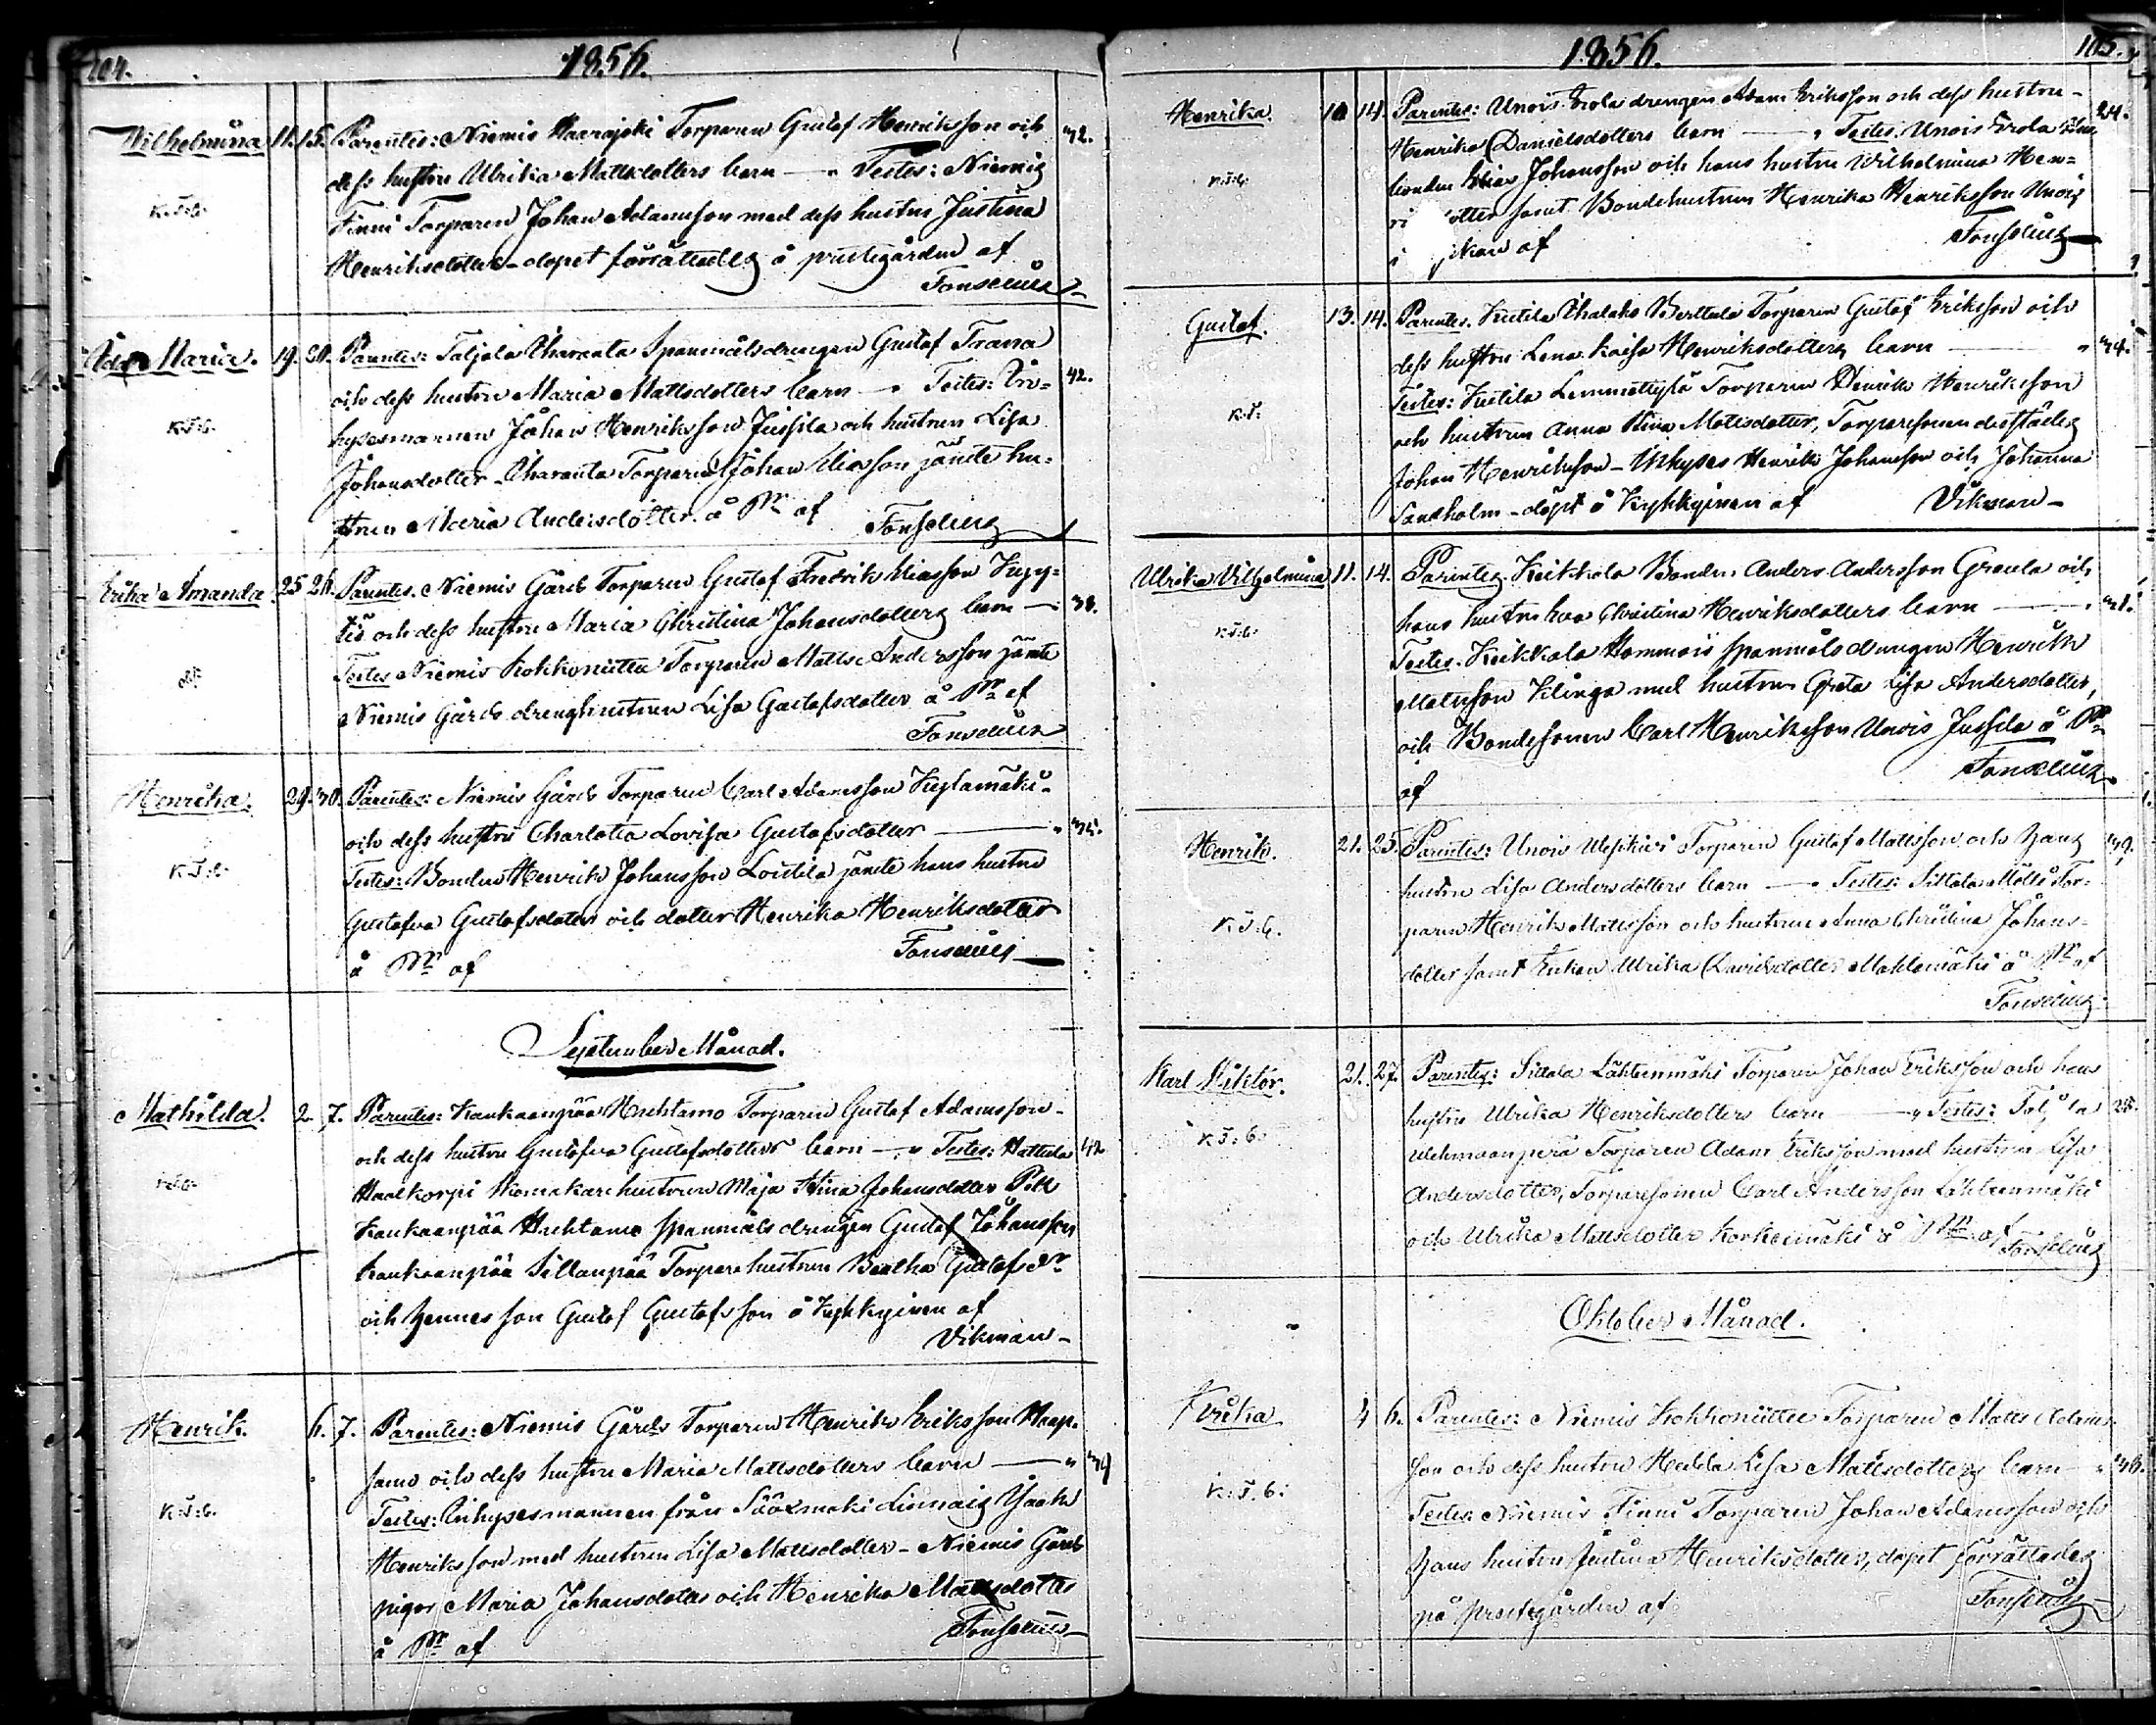 104.
1856.
Wilhelmina 11. 15. Parentes: Niemis Haarajoki Torparen Gustaf Henriksson och 32.
dess hustru Ulrika Mattsdotters barn — " Testes: Niemis
K.J.b. Finni Torparen Johan Adamsson med dess hustru Justina
Henriksdotter - dopet förrättades å prestegården af
Fonselius
Ada Maria. 19. 20. Parentes: Taljala Charanta Spanmålsdrengen Gustaf Trana
och dess hustru Maria Mattsdotters barn — " Testes: In= 42.
K.J.b. hysesmannen Johan Henriksson Jussila och hustrun Lisa
Johansdotter - Charanta Torparen Johan Eliasson jämte hu=
strun Maria Andersdotter å Pr af Fonselius
Erika Amanda. 25 26. Parentes. Niemis Gårds Torparen Gustaf Fredrik Eliasson
och dess hustru Maria Christina Johansdotters barn — " 31.
Testes Niemis Kokkoniittu Torparen Matts Andersson jämte
Niemis Gårds drenghustrun Lisa Gustafsdotter å Pr af
Fonselius
Henrika. 29. 30. Parentes: Niemis Gårds Torparen Carl Adamsson Kylamäki
och dess hustru Charlotta Lovisa Gustafsdotter — " 35.
K.J.b. Testes: Bonden Henrik Johansson Loitila jämte hans hustru
Gustafva Gustafsdotter och dotter Henrika Henriksdotter
å Pr af Fonselius
September Månad.
Mathilda. 2. 7. Parentes: Kankaanpää Huhtamo Torparen Gustaf Adamsson
och dess hustru Gustafva Gustafsdotters barn — " Testes: Hattula 42
Haalkorpi Skomakare hustrun Maja Stina Johansdotter
Kankaanpää Huhtamo Spanmåls drengen Gustaf Johansson
Kankaanpää Sillanpää Torpare hustrun Beatha Gustafs Dr
och hennes son Gustaf Gustafsson å Kyhkyinen af
Vikman
Henrik. 6. 7. Parentes: Niemis Gårds Torparen Henrik Eriksson Haap=
samo och dess hustru Maria Mattsdotters barn — " 34
K.J.b. Testes: Inhysesmannen från Sääxmäki Liunais Isaak
Henriksson med hustrun Lisa Mattsdotter - Niemis Gårds
pigor Maria Johansdotter och Henrika Mattsdotter
å Pr af Fonselius
1856.
105.
Henrika 10 14. Parentes: Unois Erola drengen Adam Eriksson och dess hustru 24.
Henrika Danielsdotters barn — " Testes: Unois Erola
K.J.b. bonden Elias Johansson och hans hustru Wilhelmina Hen=
ri otter samt Bondehustrun Henrika Henriksson Unois
af Fonselius
Gustaf. 13. 14. Parentes. Kutila Chalako Berttula Torparen Gustaf Eriksson och
dess hustru Lena Kaisa Henriksdotters barn — " 34.
K.J. Testes: Kutila Lemmettylä Torparen Henrik Henriksson
och hustrun Anna Stina Matsdotter, Torparesonen derstädes
Johan Henriksson - Inhyses Henrik Johansson och Johanna
Sandholm - döpt å Kyhkyinen af Vikman
Ulrika Vilhelmina 11. 14. Parentes. Keikkala Bonden Anders Andersson Greula och
hans hustru Eva Christina Henriksdotters barn — " 31.
K.J.b. Testes. Keikkala Hommois spanmåls drengen Henrik
Matsson Klinga med hustrun Greta Lisa Andersdotter,
och Bondesonen Carl Henriksson Unois Jussila å Pr
af Fonselius
Henrik. 21. 25. Parentes: Unois Ulpikivi Torparen Gustaf Mattsson och hans 39.
hustru Lisa Andersdotters barn — " Testes: Sittala Mälli Tor=
K.J.b. paren Henrik Mattsson och hustrun Anna Christina Johans=
dotter samt Enkan Ulrika Davidsdotter Mahlamäki å Pr af
Fonselius
Karl Viktor. 21. 27. Parentes: Sittala Lähteenmäki Torparen Johan Eriksson och hans
hustru Ulrika Henriksdotters barn — " Testes: Taljala 25.
K.J.b. Uchmaanperä Torparen Adam Eriksson med hustrun Lisa
Andersdotter, Torparesonen Carl Andersson Lähteenmäki
och Ulrika Mattsdotter Korkeemäki å Pr af Fonselius
Oktober Månad.
Erika 4 6. Parentes: Niemis Kokkoniittu Torparen Matts Adams=
son och dess hustru Hedda Lisa Mattsdotters barn " 36.
K.J.b. Testes: Niemis Finni Torparen Johan Adamsson och
hans hustru Justina Henriksdotter, dopet förrättades
på prestegården af Fonselius